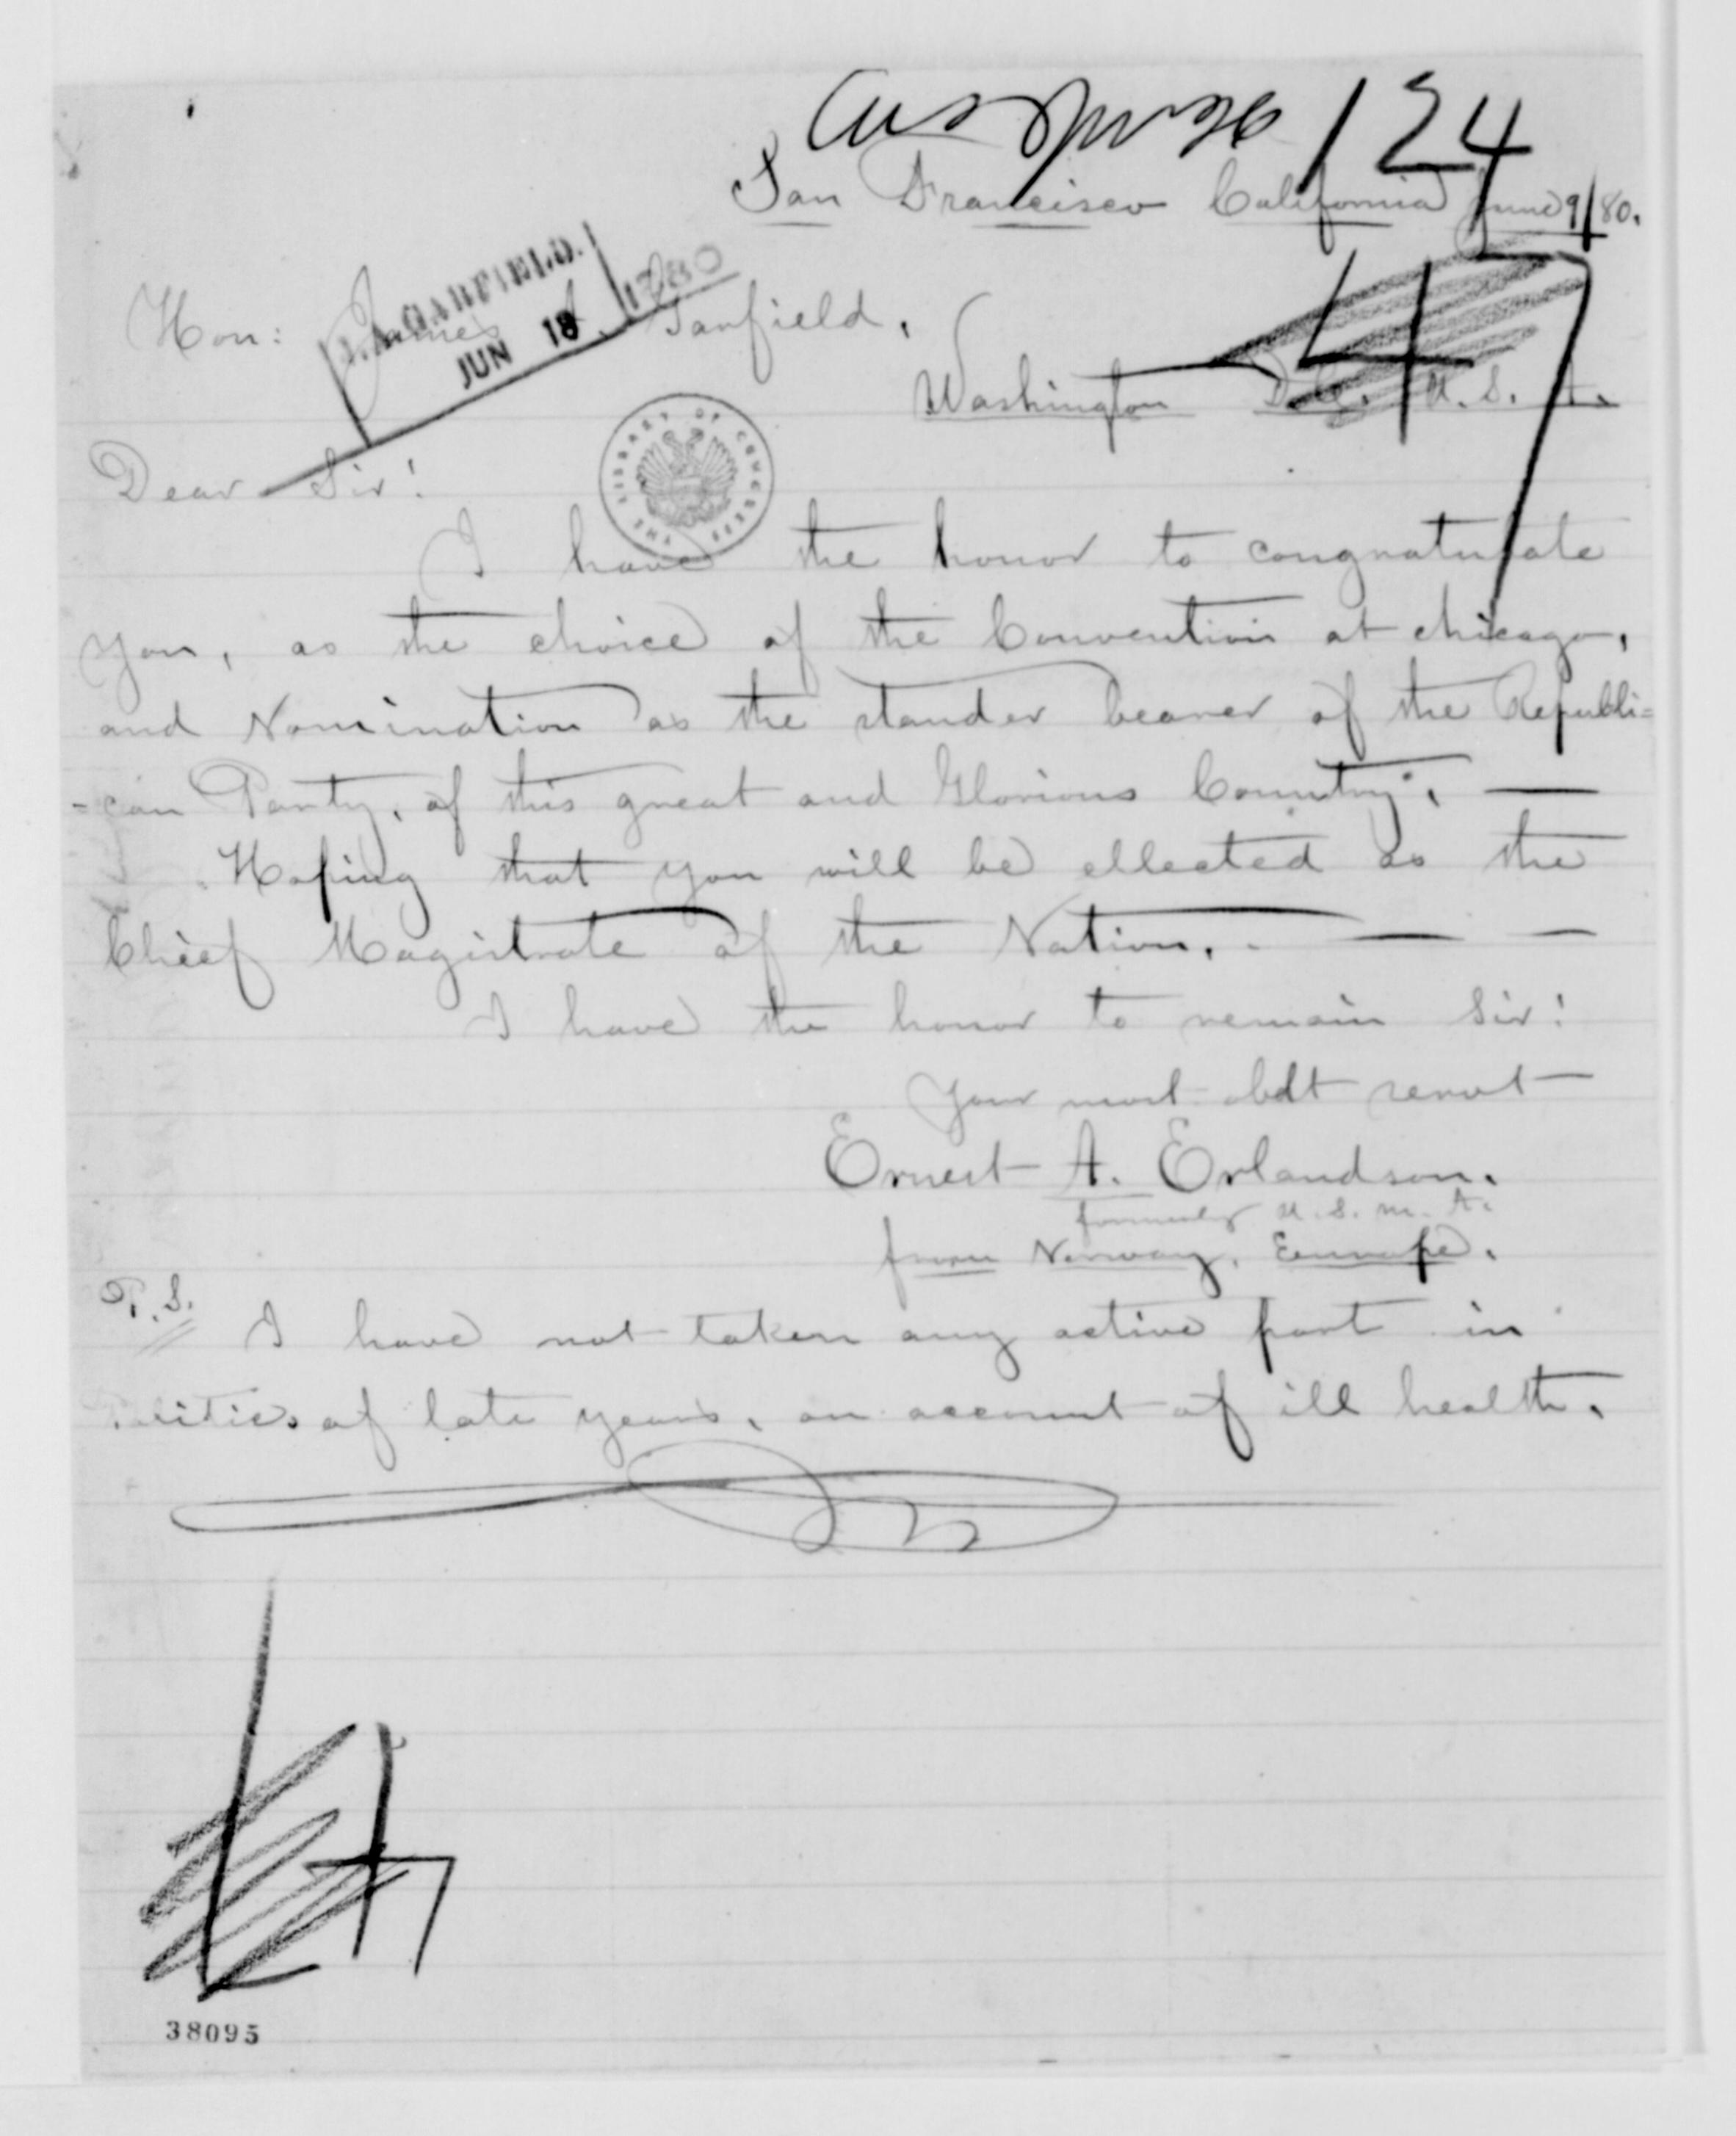 124
San Francisco California June 9/80.
J. A. GARFIELD.
JUN 18 1880
Hon: James A. Garfield,
Washington D.C. U.S.A.
THE LIBRARY OF CONGRESS
Dear Sir!
I have the honor to congratulate
you, as the choice of the Convention at chicago,
and Nomination as the stander bearer of the Republi=
-can Party, of this great and Glorious Country. —
Hoping that you will be ellected as the
Chief Magistrate of the Nation. - — —
I have the honor to remain Sir!
Your most obdt servt —
Ernest A. Erlandson.
formerly U.S.M.A.
from Norway, Eurrope.
P.S.
I have not taken any active part in
Politics of late years, on account of ill health.
47
47
38095